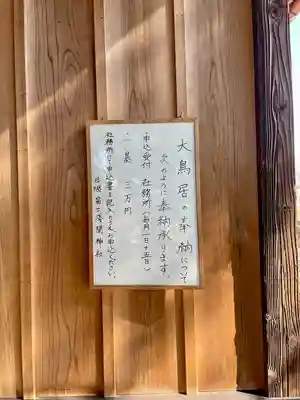 大鳥居の奉納について
次のように奉納承ります。
・申込受付 社務所(毎月一日・十五日)
・一基 三万円
社務所にて申込書に記入のうえお申込ください。
富士浅間神社